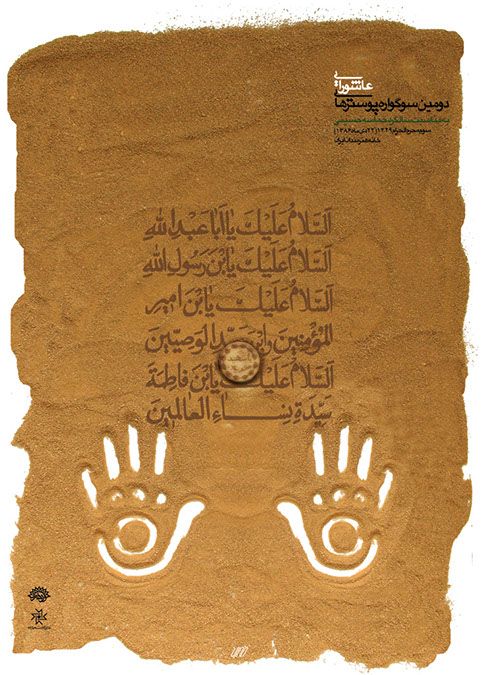 عاشورایی
دومین سوگواره پوسترهای
به مناسبت سالگرد حماسه حسینی
سوم محرم الحرام ۱۴۲۹ (۲۲ دی ماه ۱۳۸۶)
خانه هنرمندان ایران
اَلسَّلامُ عَلَيْكَ يا اَبا عَبْدِ اللهِ
اَلسَّلامُ عَلَيْكَ يَا بْنَ رَسُولِ اللهِ
اَلسَّلامُ عَلَيْكَ يَا بْنَ اَميرِ
الْمُؤْمِنينَ وَابْنَ سَيِّدِ الْوَصِيّينَ
اَلسَّلامُ عَلَيْكَ يَا بْنَ فاطِمَةَ
سَيِّدَةِ نِساءِ الْعالَمينَ